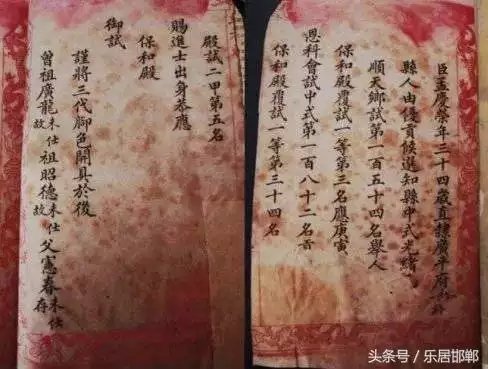 臣孟慶榮年三十四歲直隸廣平府
縣人由優貢候選知縣中式光緒
順天鄉試第一百五十四名舉人
保和殿覆試一等第三名應庚寅
恩科會試中式第一百八十二名
保和殿覆試一等第三十四名
殿試二甲第五名
賜進士出身恭應
保和殿
御試
謹將三代腳色開具於後
曾祖廣龍未仕故祖昭德未仕故父憲春未仕存
头条号 / 乐居邯郸